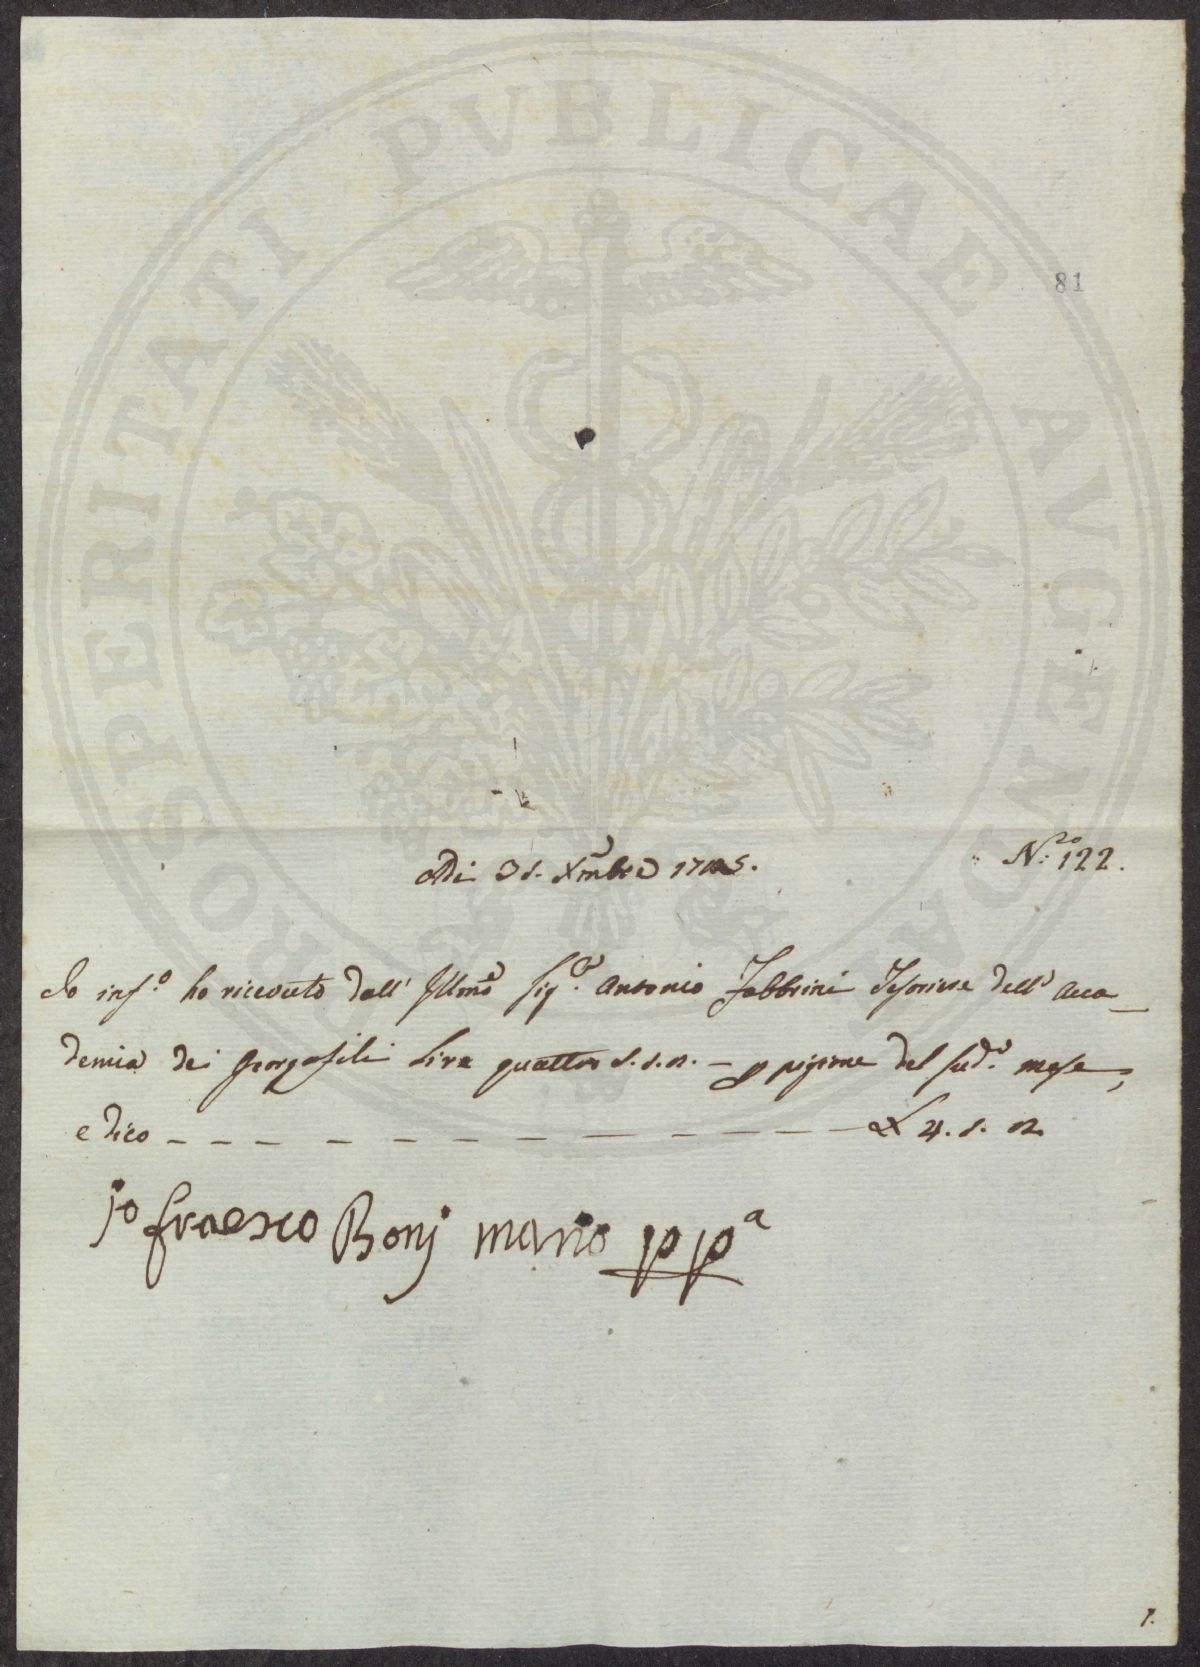 PROSPERITATI PUBLICAE AUGENDAE
81
Adi 31. Xmbre
N.o 122.
Io inf.o ho riceuto dall' Illmo Sig.r Antonio Fabbrini Tesoriere dell' Acca
demia dei Georgofili Lire quattro p pigione del sud.o mese,
e dico — — — — — — — — — — £ 4.
io Bonj mano pp.a
1.